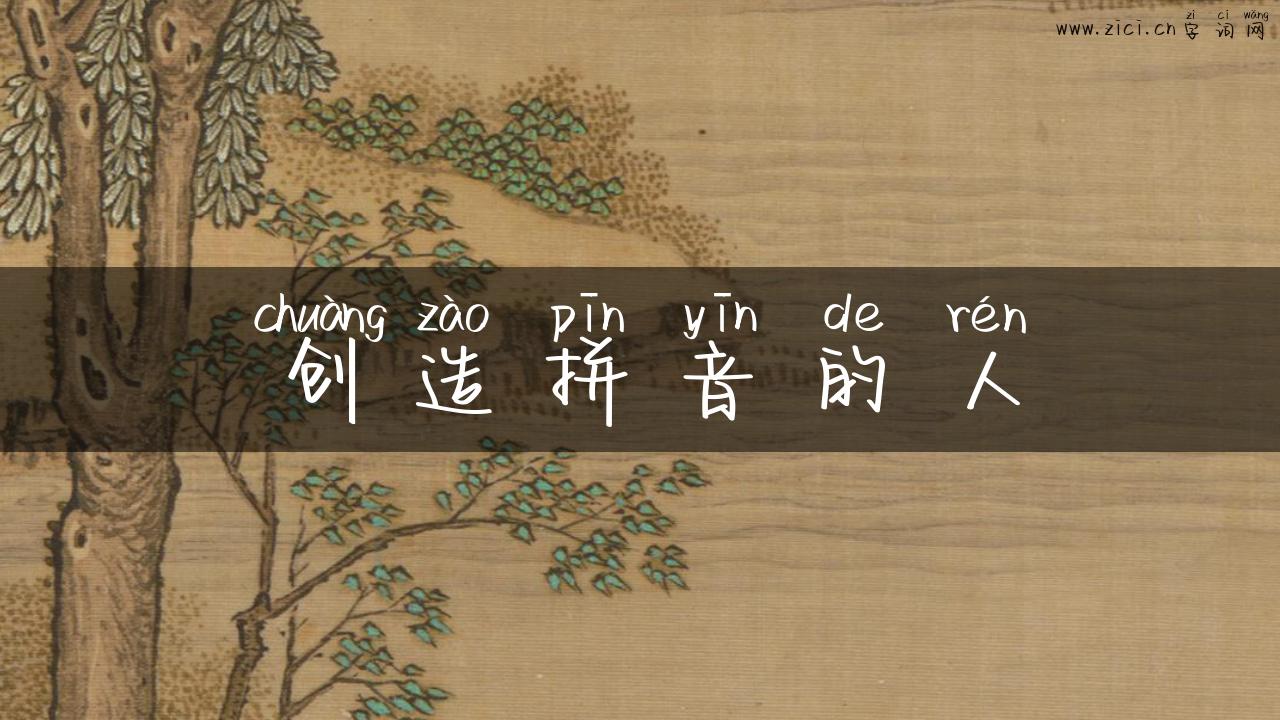 zì cí wǎng
www.zici.cn 字词网
chuàng zào pīn yīn de rén
创造拼音的人